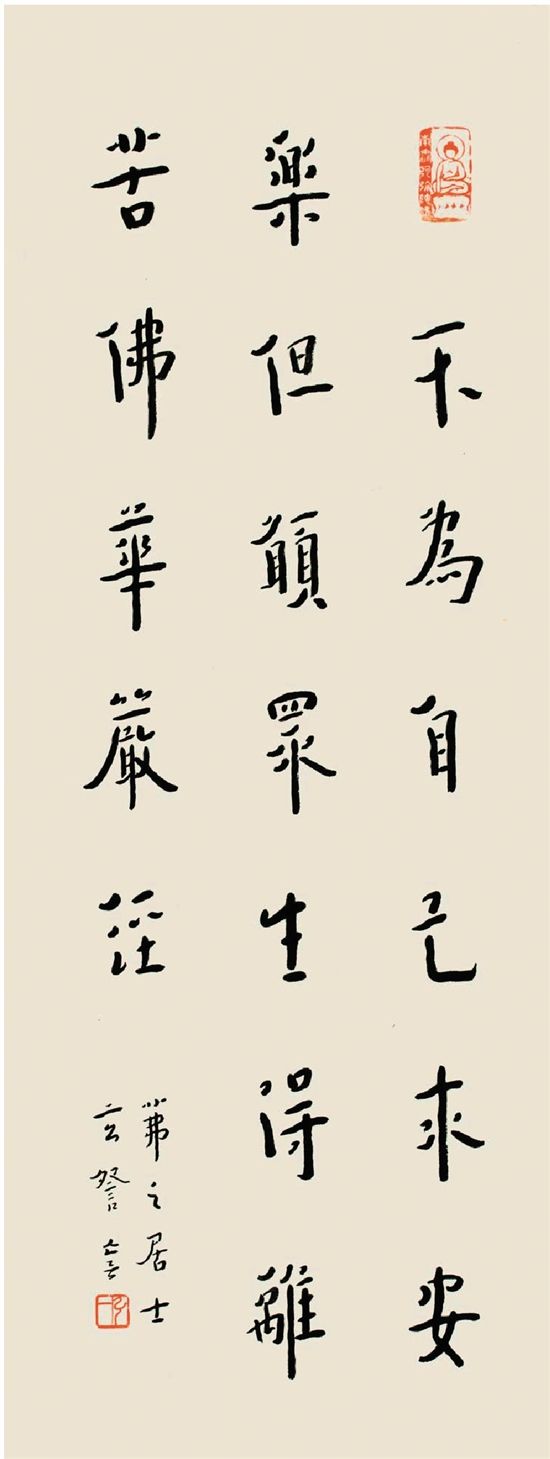 不為自己求安
樂但願眾生得離
苦佛華嚴經
茀之居士
玄謦書